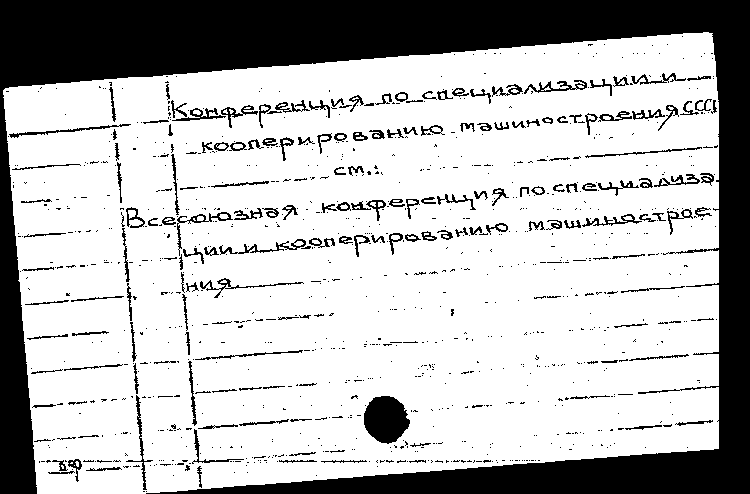 Конференция по специализации и
кооперированию машиностроения СССР
см.:
Всесоюзная конференция по специализа
ции и кооперированию машинострое-
ния.